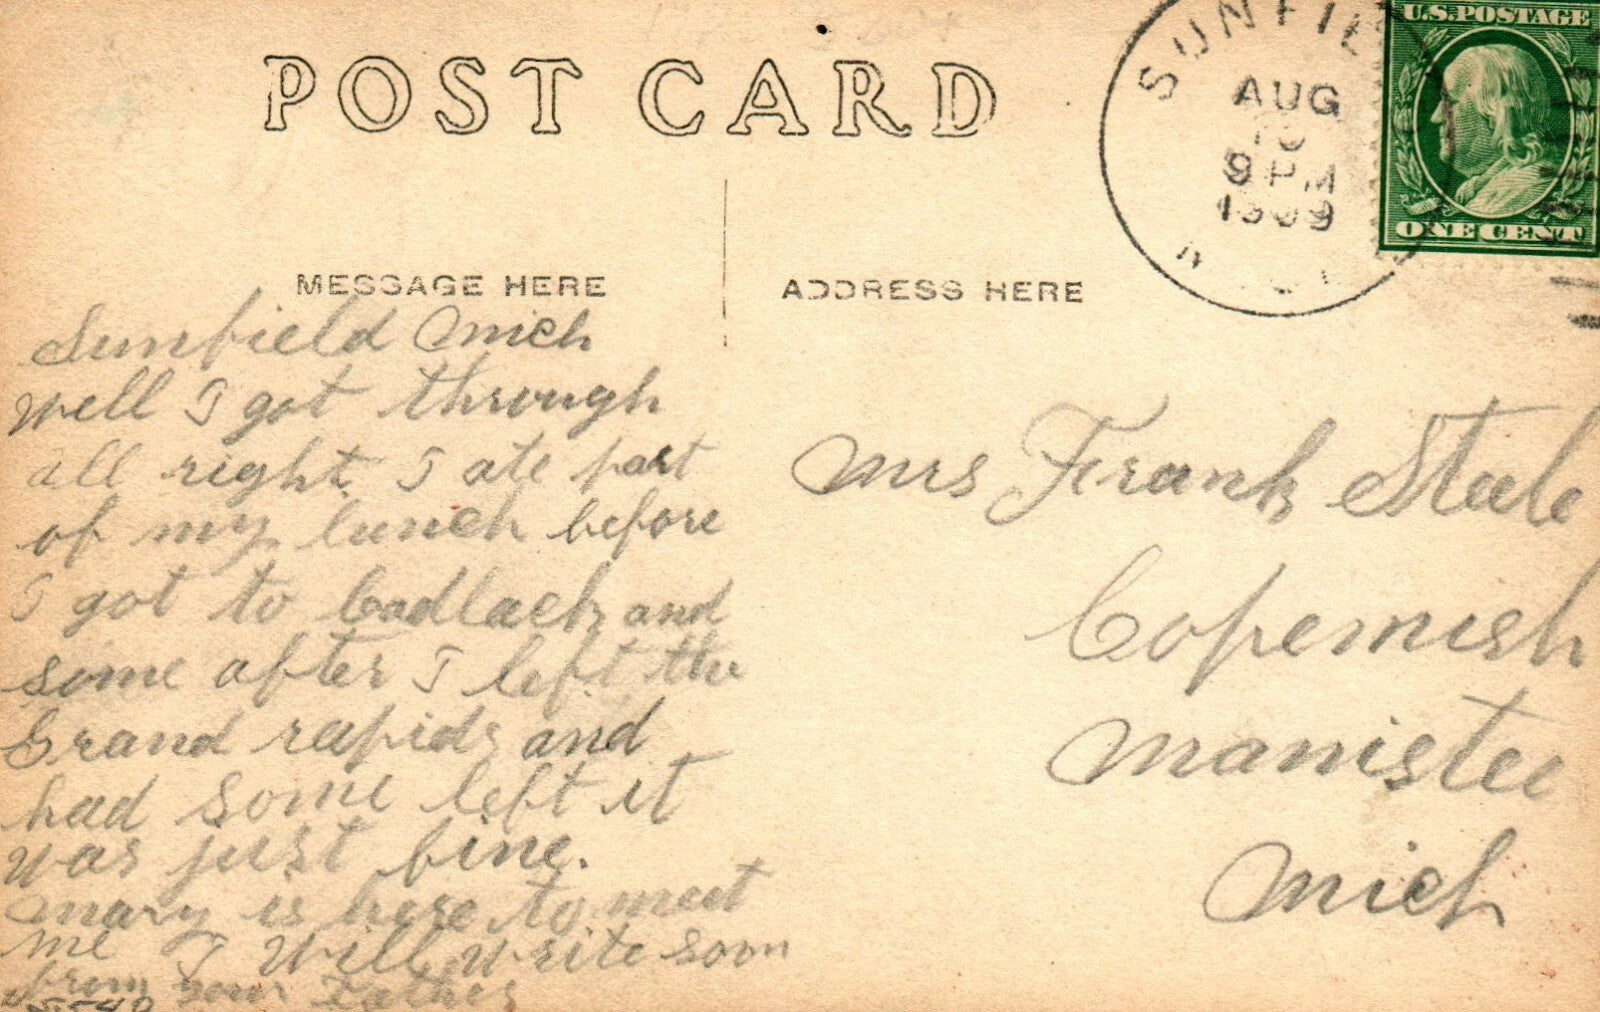 POST CARD
SUNFIE
AUG
10
9 PM
1909
U.S. POSTAGE
ONE CENT
MESSAGE HERE
Sunfield Mich
Well I got through
all right. I ate part
of my lunch before
I got to Cadlack and
some after I left the
Grand rapids and
had some left it
was just fine.
Mary is here to meet
me I will write soon
from your Father
ADDRESS HERE
Mrs Frank Steele
Copemish
Manistee
Mich